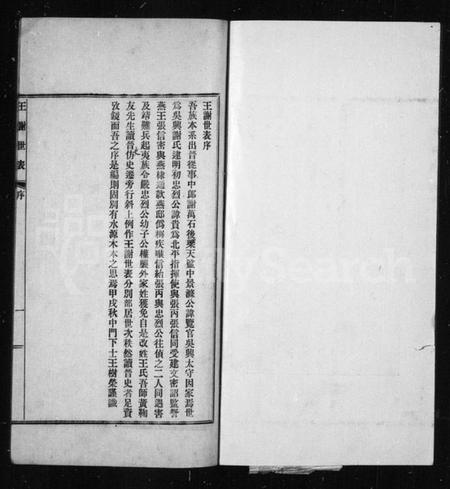 王謝世表序
吾族本系出晉從事中郎謝萬石後梁天監中景滌公諱覽官吳興太守因家焉世
為吳興謝氏逮明初忠烈公諱貴為北平指揮使與張丙張信同受建文密詔監督
燕王張信密與燕棣通款燕邸偽稱疾嗾信紿張丙與忠烈公往偵之二人同遇害
及靖難兵起夷族令嚴忠烈公幼子公權匿外家姓獲免自是改姓王氏吾師黃鞠
友先生讀晉仿史遷旁行斜上例作王謝世表分別部居世次秩然讀晉史者足資
攷鏡而吾之序是編則固別有水源木本之思焉甲戌秋中門下士王樹榮謹識
王謝世表
序
一